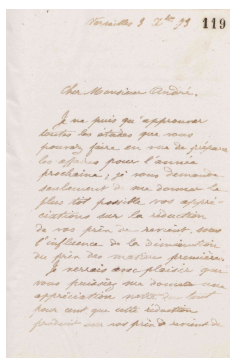 Versailles 3 Xbre 93
119
Cher Monsieur André,
Je ne puis qu'approuver
toutes les études que vous
pouvez faire en vue de préparer
les affaires pour l'année
prochaine; je vous demande
seulement de me donner le
plus tôt possible vos appré-
ciations sur la réduction
de vos prix de revient, sous
l'influence de la diminution
du prix des matières premières.
Je verrais avec plaisir que
vous puissiez me donner une
appréciation nette du tant
pour cent que cette réduction
produit sur vos prix de revient de